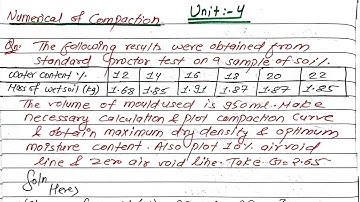 Numerical of Compaction
Unit:-4
Qn: The following results were obtained from
standard proctor test on a sample of soil.
Water content % 12 14 16 18 20 22
Mass of wet soil (kg) 1.68 1.85 1.91 1.87 1.87 1.85
The volume of mould used is 950ml. Make
necessary calculation & plot compaction curve
& obtain maximum dry density & optimum
moisture content. Also plot 10% air void
line & zero air void line. Take G=2.65
Soln
Here,